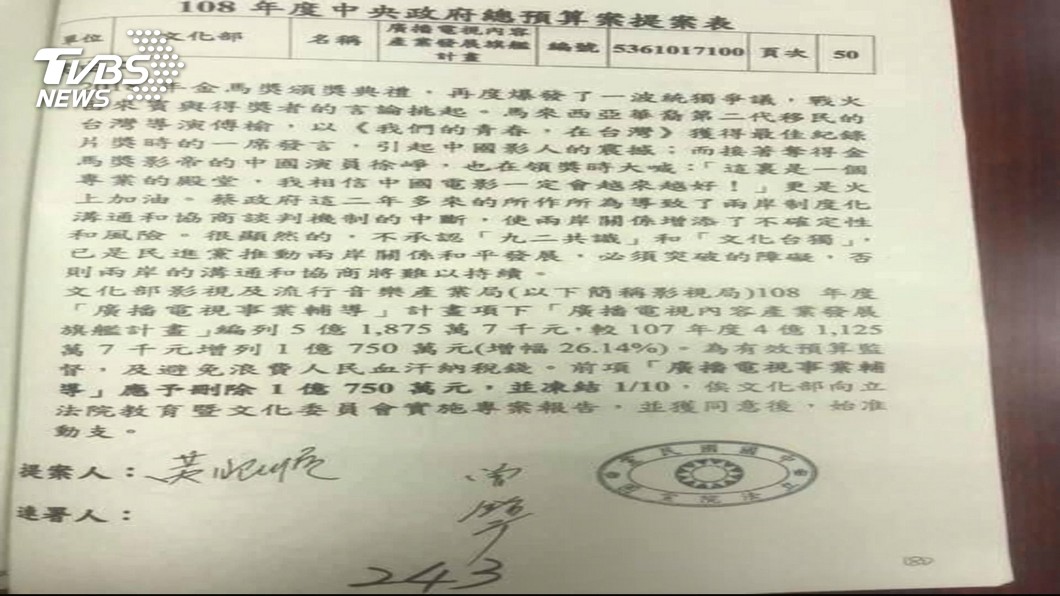 108 年度中央政府總預算案提案表
單位 文化部 名稱 廣播電視內容產業發展旗艦計畫 編號 5361017100 頁次 50
TVBS NEWS
金馬獎頒獎典禮，再度爆發了一波統獨爭議，戰火
來賓與得獎者的言論挑起。馬來西亞華裔第二代移民的
台灣導演傅榆，以《我們的青春，在台灣》獲得最佳紀錄
片獎時的一席發言，引起中國影人的震撼；而接著奪得金
馬獎影帝的中國演員徐崢，也在領獎時大喊：「這裏是一個
專業的殿堂，我相信中國電影一定會越來越好！」更是火
上加油。蔡政府這二年多來的所作所為導致了兩岸制度化
溝通和協商談判機制的中斷，使兩岸關係增添了不確定性
和風險。很顯然的，不承認「九二共識」和「文化台獨」，
已是民進黨推動兩岸關係和平發展，必須突破的障礙，否
則兩岸的溝通和協商將難以持續。
文化部影視及流行音樂產業局(以下簡稱影視局)108 年度
「廣播電視事業輔導」計畫項下「廣播電視內容產業發展
旗艦計畫」編列 5 億 1,875 萬 7 千元，較 107 年度 4 億 1,125
萬 7 千元增列 1 億 750 萬元(增幅 26.14%)。為有效預算監
督，及避免浪費人民血汗納稅錢。前項「廣播電視事業輔
導」應予刪除 1 億 750 萬元，並凍結 1/10，俟文化部向立
法院教育暨文化委員會實施專案報告，並獲同意後，始准
動支。
提案人：
連署人：
243